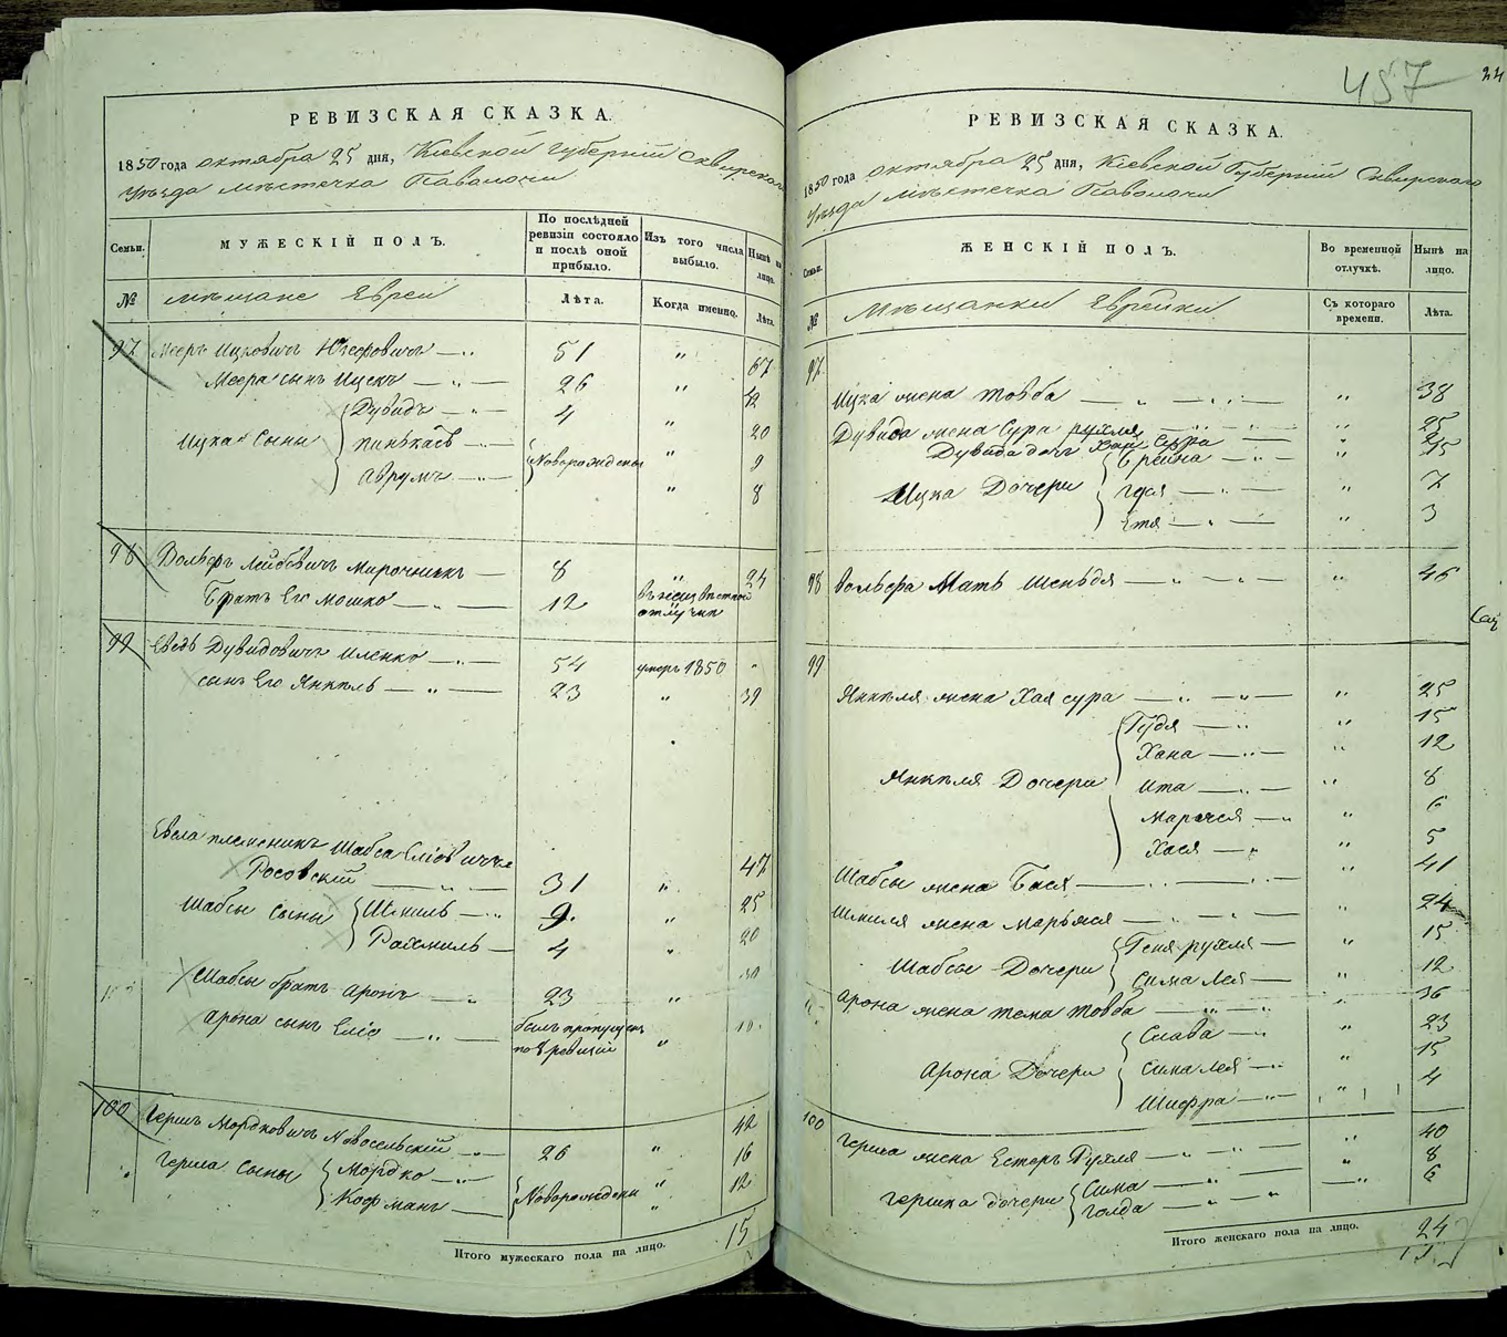 РЕВИЗСКАЯ СКАЗКА.
1850 года октября 25 дня, Кіевской губерніи Сквирскаго
Уѣзда мѣстечка Паволочи
Семьи.
МУЖЕСКІЙ ПОЛЪ.
По послѣдней ревизіи состояло и послѣ оной прибыло.
Изъ того числа выбыло.
Нынѣ на лицо.
№
мѣщане Евреи
Лѣта.
Когда именно.
Лѣта.
97 Мееръ Ицковичъ 51 " 67
Меера сынъ Ицекъ 26 " 42
Дувидъ 4 " 20
Ицка Сыны Пинькасъ Новорождены " 9
Аврумъ " 8
98 Вольфъ Лейбовичъ Мирочникъ 8 " 24
Братъ Его Мошко 12 въ неизвѣстной отлучкѣ
99 Евель Дувидовичъ Иленко 54 умеръ 1850 "
сынъ Его Янкель 23 " 39
Евела племеникъ Шабса Еліовичъ
Росовскій 31 " 47
Шабсы Сыны Шмиль 9 " 25
Рахмиль 4 " 20
Шабсы братъ Аронъ 23 "
Арона сынъ Еліо былъ пропущенъ по 8 ревизіи " 10
100 Гершъ Мордковичъ Новосельскій 26 " 42
Герша Сыны Мордко " 16
Кофманъ Новорождены " 12
Итого мужескаго пола на лицо. 15
457
РЕВИЗСКАЯ СКАЗКА.
1850 года октября 25 дня, Кіевской Губерніи Сквирскаго
Уѣзда мѣстечка Паволочи
Семьи.
ЖЕНСКІЙ ПОЛЪ.
Во временной отлучкѣ.
Нынѣ на лицо.
№
Мѣщанки Еврейки
Съ котораго времени.
Лѣта.
97
Ицка жена Товба " 38
Дувида жена Сура Рухля " 25
Дувида дочь Хая Сура "
Брейна " 15
Ицка Дочери Гуся " 7
Етя " 3
98 Вольфа Мать Шеньдя " 46
99
Янкеля жена Хая сура " 25
Гудя " 15
Хана " 12
Янкеля Дочери Ита " 8
" 6
Хася " 5
Шабсы жена Бася " 41
Шмиля жена Марьяся " 24
Геня рухля " 15
Шабсы Дочери Сима Лея " 12
Арона жена тема товба " 36
Слава " 23
Арона Дочери Сима Лея " 15
Шифра " 4
100 Герша жена Естеръ Рухля " 40
Сима " 8
Гершка дочери Голда " 6
Итого женскаго пола на лицо. 24